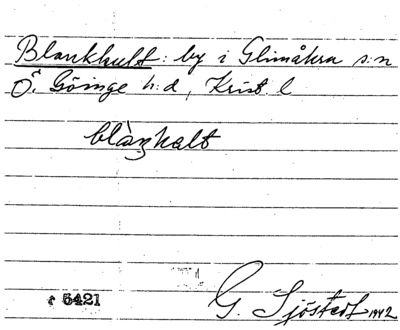 Blankhult: by i Glimåkra s:n
Ö. Göinge h:d, Krist. l
blàŋhalt
5421
G. Sjöstedt 1942